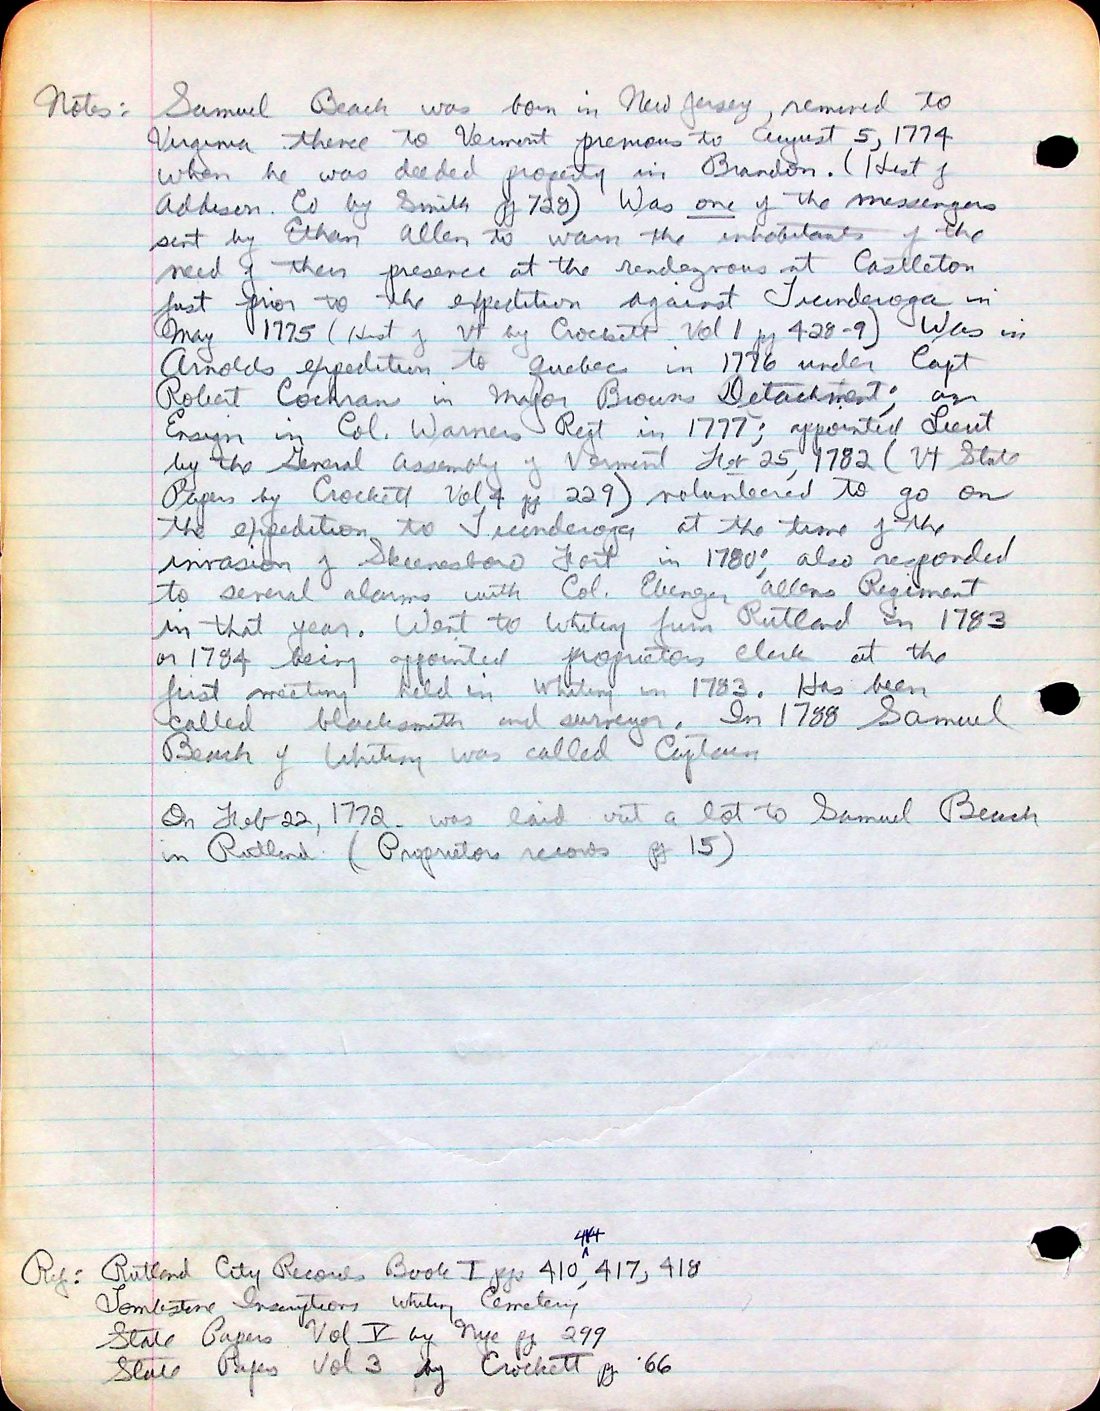 Notes: Samuel Beach was born in New Jersey, removed to
Virginia thence to Vermont previous to August 5, 1774
when he was deeded property in Brandon. (Hist of
Addison. Co by Smith pg 728) Was one of the messengers
sent by Ethan Allen to warn the inhabitants of the
need of their presence at the rendezvous at Castleton
just prior to the expedition against Ticonderoga in
May 1775 (Hist of Vt by Crockett Vol 1 pg 428-9) Was in
Arnolds expedition to Quebec in 1776 under Capt
Robert Cochran in Major Browns Detachment; an
Ensign in Col. Warners Regt in 1777; appointed Lieut
by the General Assembly of Vermont Feb 25, 1782 (Vt State
Papers by Crockett Vol 4 pg 229) volunteered to go on
the expedition to Ticonderoga at the time of the
invasion of Skeensboro Fort in 1780; also responded
to several alarms with Col. Ebenezer Allens Regiment
in that year. Went to Whiting from Rutland in 1783
or 1784 being appointed proprietors clerk at the
first meeting held in Whiting in 1783. Has been
called blacksmith and surveyor. In 1788 Samuel
Beach of Whiting was called Captain
On Feb 22, 1772 was laid out a lot to Samuel Beach
in Rutland (Proprietors records pg 15)
414
Ref: Rutland City Records Book I pgs 410, 417, 418
Tombstone Inscriptions Whiting Cemetery
State Papers Vol V by Nye pg 299
State Papers Vol 3 by Crockett pg 66